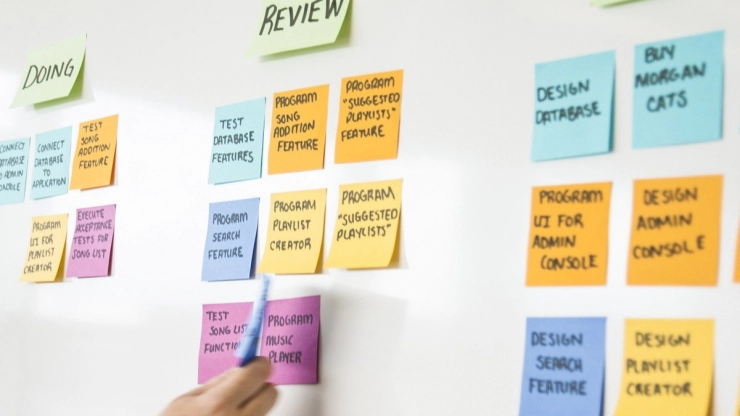 DOING
CONNECT
DATABASE
TO ADMIN
CONSOLE
CONNECT
DATABASE
TO
APPLICATION
TEST
SONG
ADDITION
FEATURE
PROGRAM
UI FOR
PLAYLIST
CREATOR
EXECUTE
ACCEPTANCE
TESTS FOR
SONG LIST
REVIEW
TEST
DATABASE
FEATURES
PROGRAM
SONG
ADDITION
FEATURE
PROGRAM
"SUGGESTED
PLAYLISTS"
FEATURE
PROGRAM
SEARCH
FEATURE
PROGRAM
PLAYLIST
CREATOR
PROGRAM
"SUGGESTED
PLAYLISTS"
TEST
SONG LIST
PROGRAM
MUSIC
PLAYER
DESIGN
DATABASE
BUY
MORGAN
CATS
PROGRAM
UI FOR
ADMIN
CONSOLE
DESIGN
ADMIN
CONSOLE
DESIGN
SEARCH
FEATURE
DESIGN
PLAYLIST
CREATOR